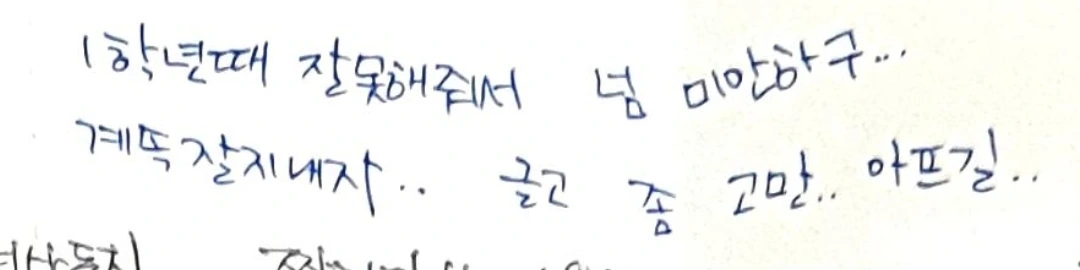 1학년때 잘못해줘서 넘 미안하구...
계똑잘지내자.. 글고 좀 고만.. 아프길..